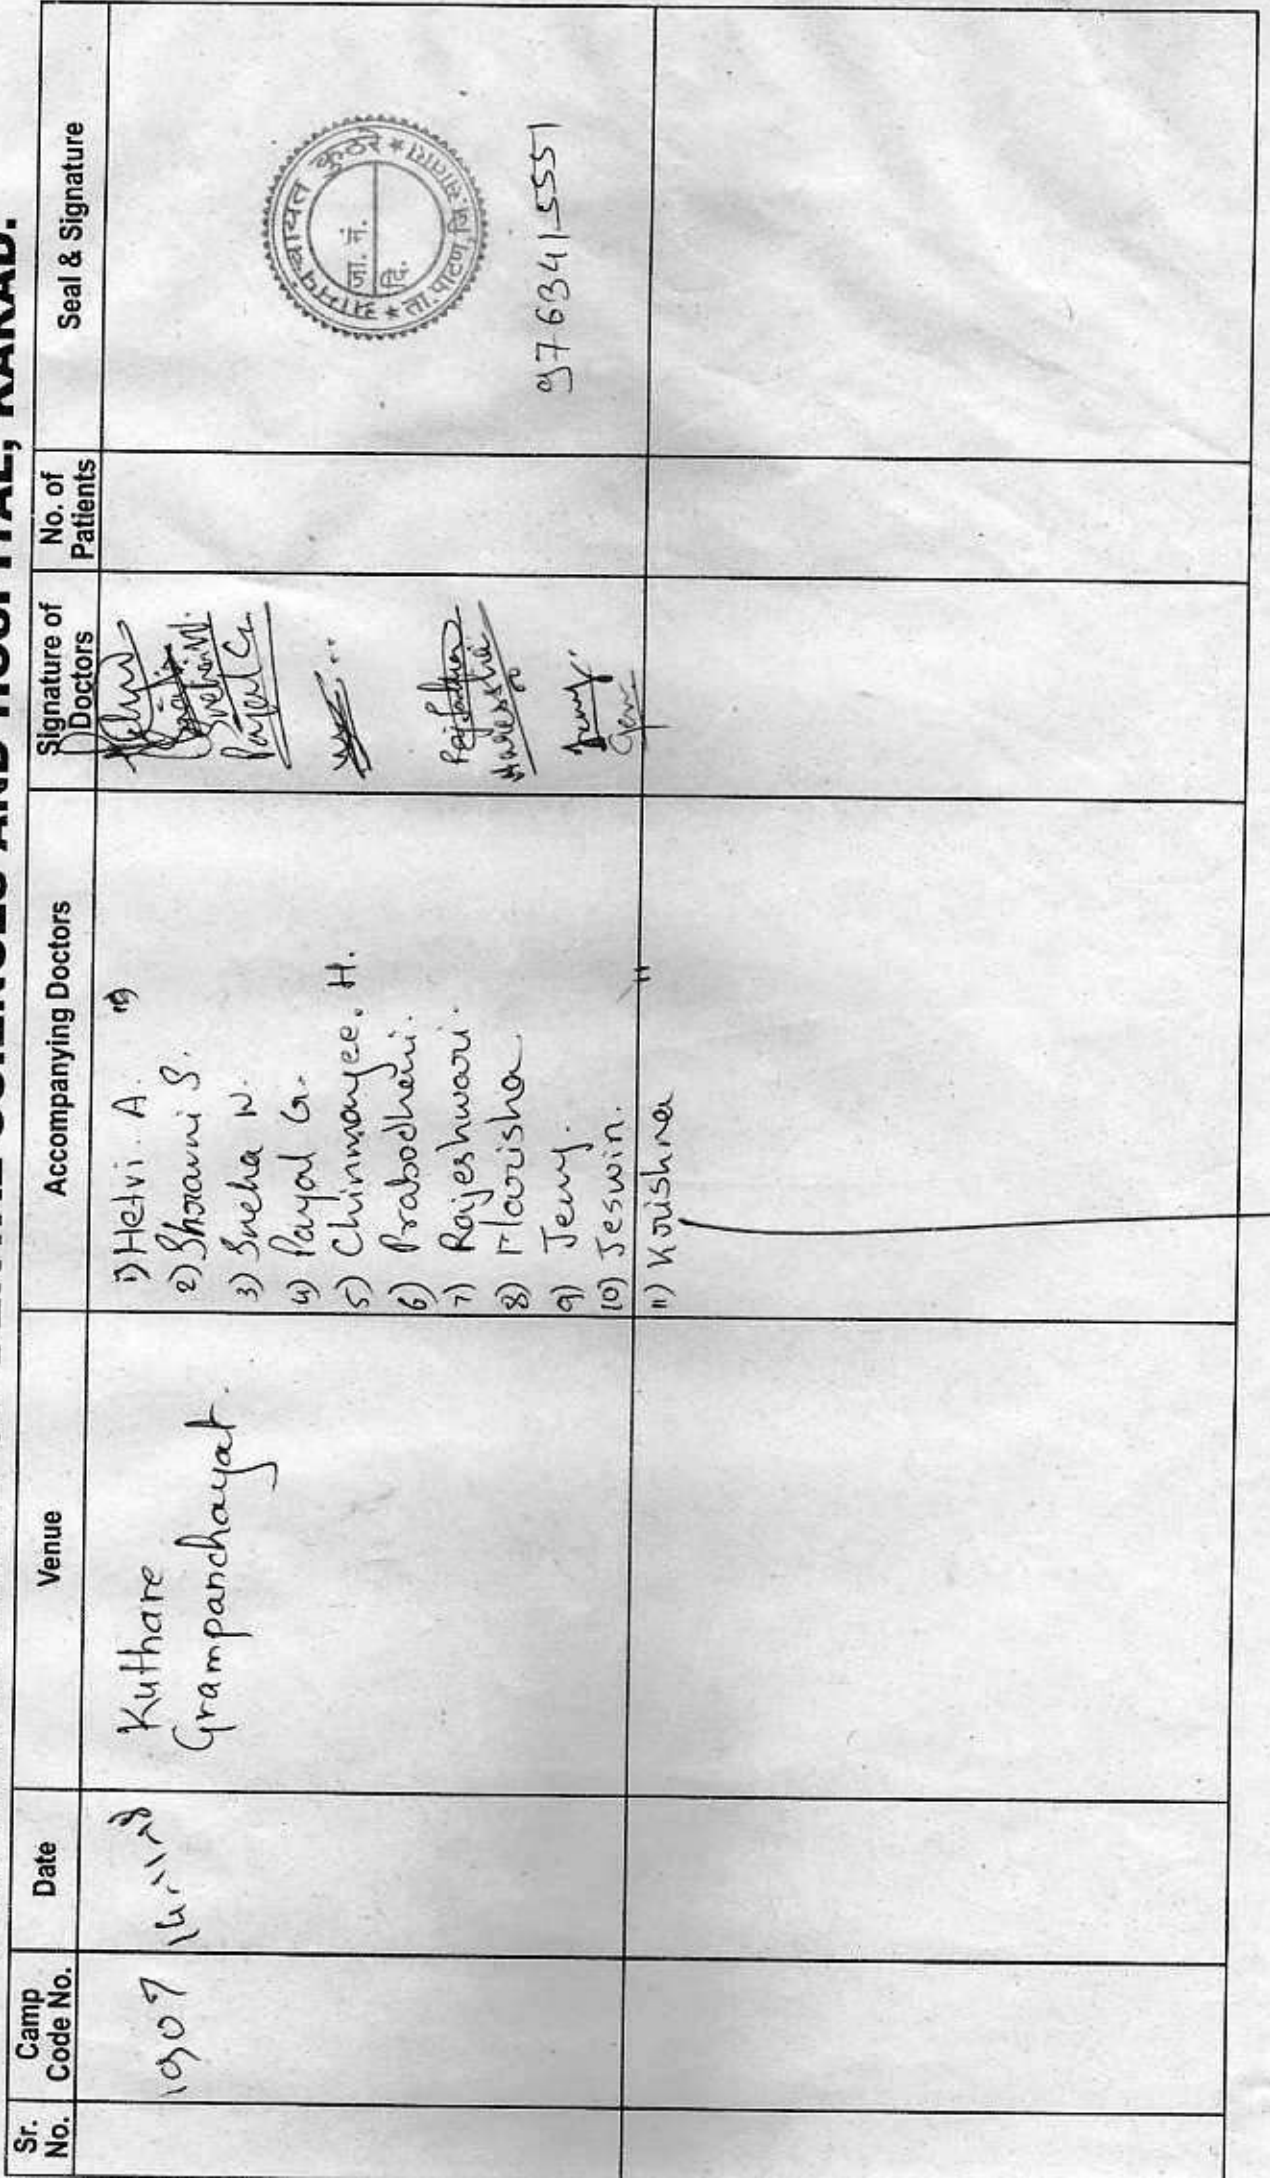 SCIENCES AND HOSPITAL, KARAD.
Sr. No.
Camp Code No.
Date
Venue
Accompanying Doctors
Signature of Doctors
No. of Patients
Seal & Signature
1907
Kuthare
Grampanchayat.
1) Hetvi. A.
2) Shravni S.
3) Sneha N.
4) Payal G.
5) Chinmayee. H.
6) Prabodhini.
7) Rajeshwari.
8) Harisha
9) Jeny.
10) Jeswin.
11) Krishna
Payal G.
ग्रामपंचायत कुठरे
जा. नं.
दि.
ता. पाटण, जि. सातारा
976341-5551